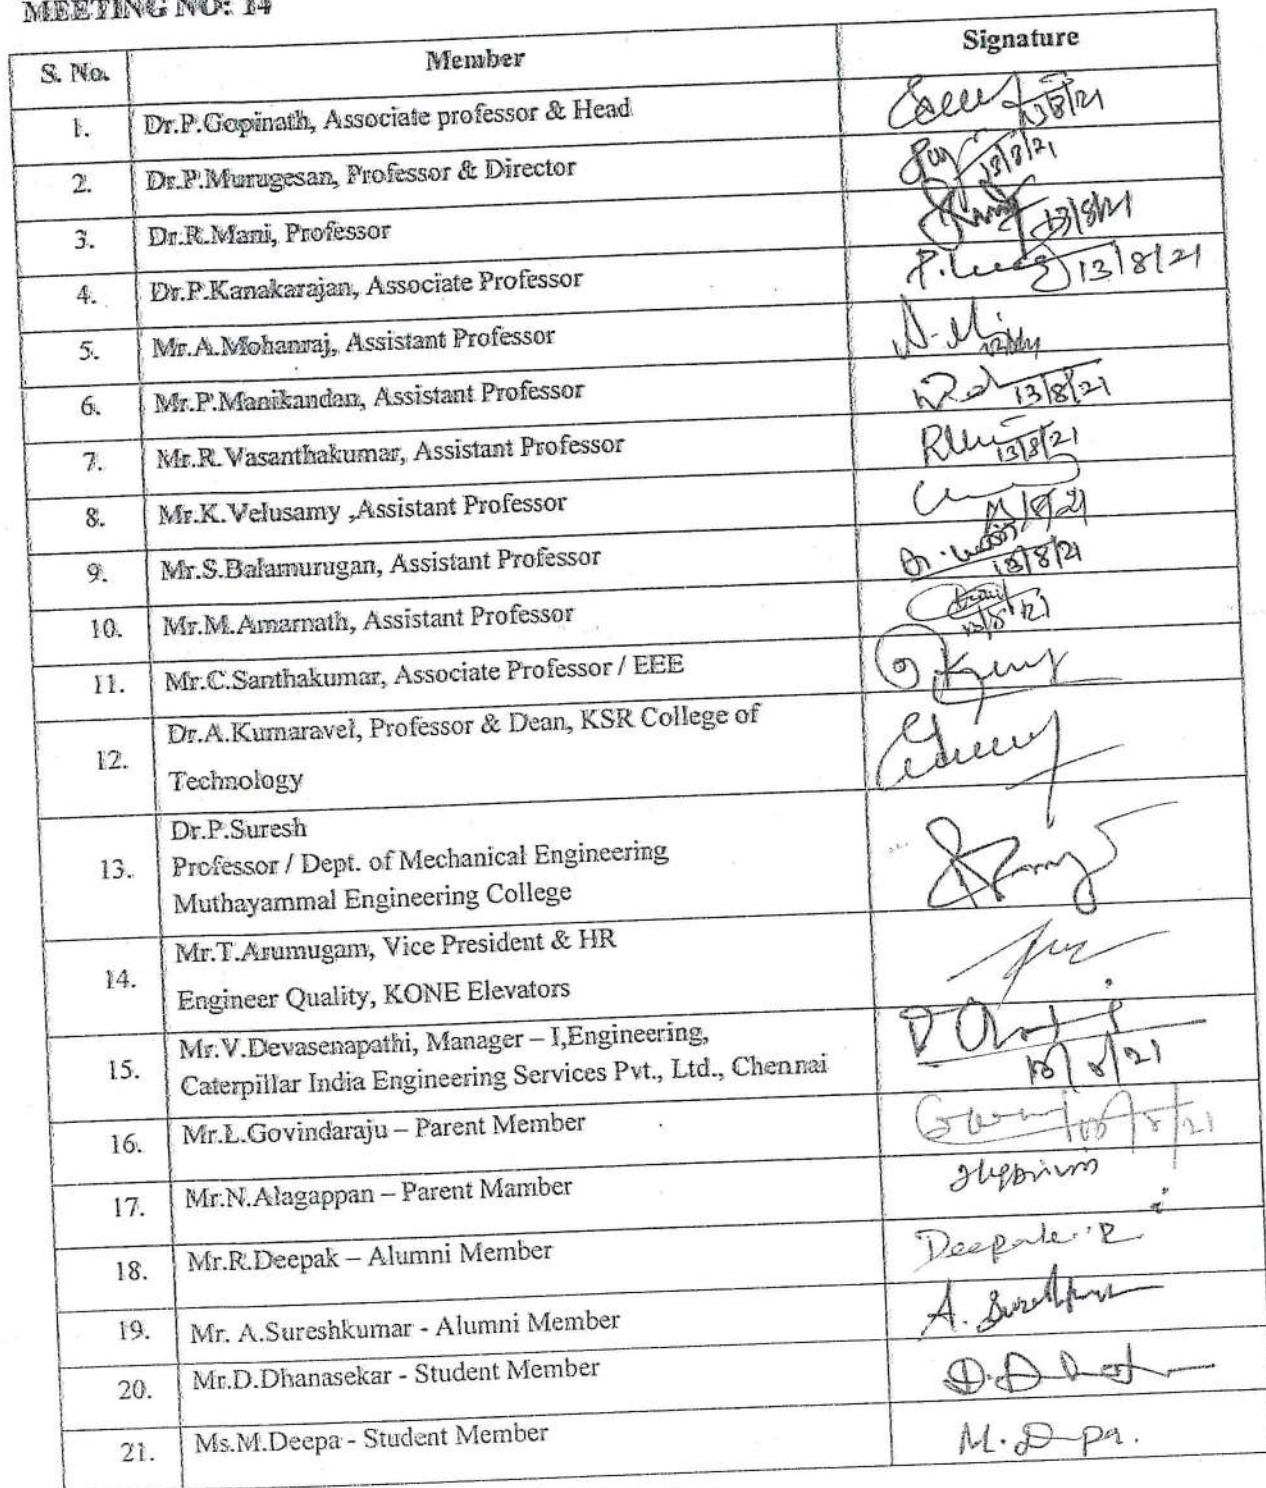 MEETING NO: 14
S. No. Member Signature
1. Dr.P.Gopinath, Associate professor & Head 13/8/21
2. Dr.P.Murugesan, Professor & Director 13/8/21
3. Dr.R.Mani, Professor 13/8/21
4. Dr.P.Kanakarajan, Associate Professor 13/8/21
5. Mr.A.Mohanraj, Assistant Professor
6. Mr.P.Manikandan, Assistant Professor 13/8/21
7. Mr.R.Vasanthakumar, Assistant Professor 13/8/21
8. Mr.K.Velusamy ,Assistant Professor
9. Mr.S.Balamurugan, Assistant Professor 13/8/21
10. Mr.M.Amarnath, Assistant Professor 13/8/21
11. Mr.C.Santhakumar, Associate Professor / EEE
12. Dr.A.Kumaravel, Professor & Dean, KSR College of
Technology
Dr.P.Suresh
13. Professor / Dept. of Mechanical Engineering
Muthayammal Engineering College
14. Mr.T.Arumugam, Vice President & HR
Engineer Quality, KONE Elevators
15. Mr.V.Devasenapathi, Manager – I,Engineering,
Caterpillar India Engineering Services Pvt., Ltd., Chennai
16. Mr.L.Govindaraju – Parent Member
17. Mr.N.Alagappan – Parent Mamber
18. Mr.R.Deepak – Alumni Member Deepak. R
19. Mr. A.Sureshkumar - Alumni Member
20. Mr.D.Dhanasekar - Student Member
21. Ms.M.Deepa - Student Member